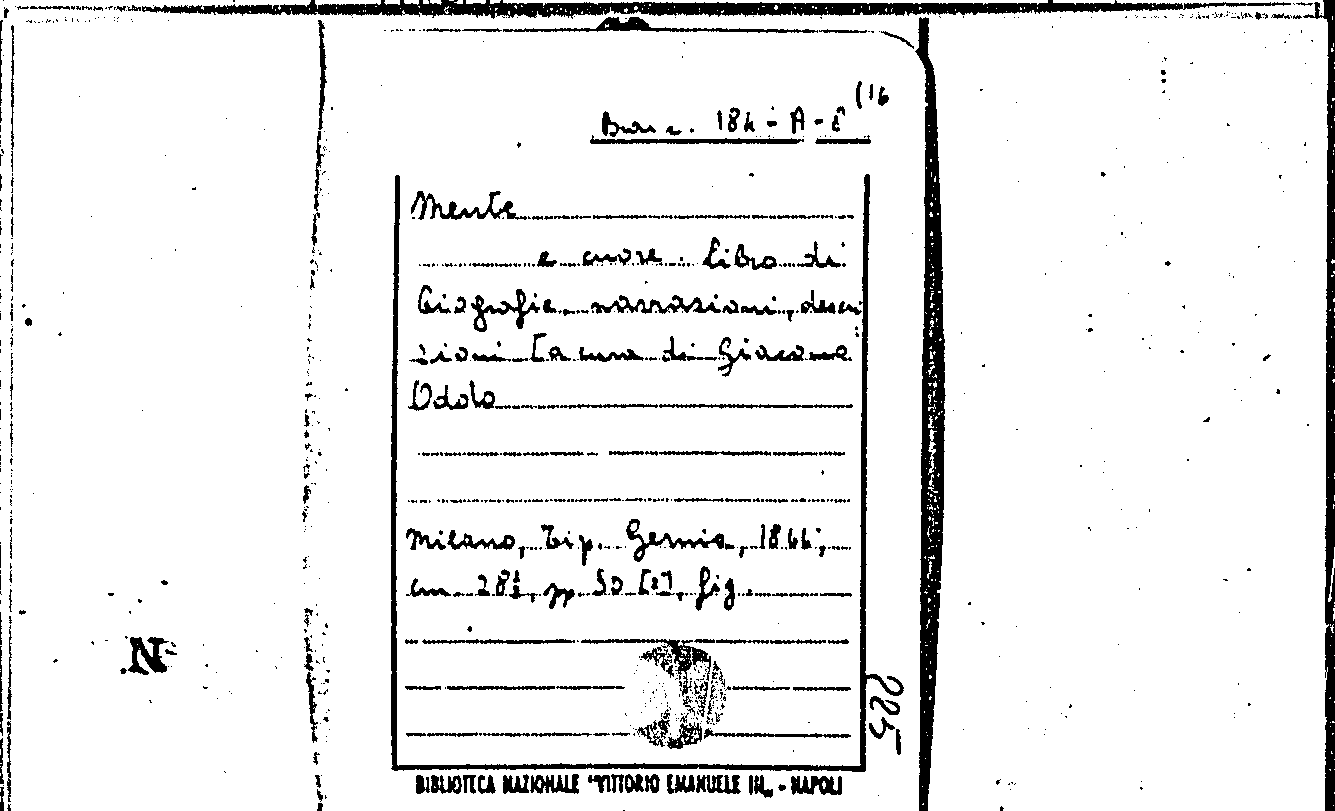 (16
Busc. 184 - A - 2
Mente
e cuore. Libro di
biografie, narrazioni, descri
zioni [a cura di Giacomo
Odolo
Milano, Tip. Gernia, 1844;
cm. 28½, pp. 50 [2], fig.
885
N.
BIBLIOTECA NAZIONALE "VITTORIO EMANUELE III„ - NAPOLI